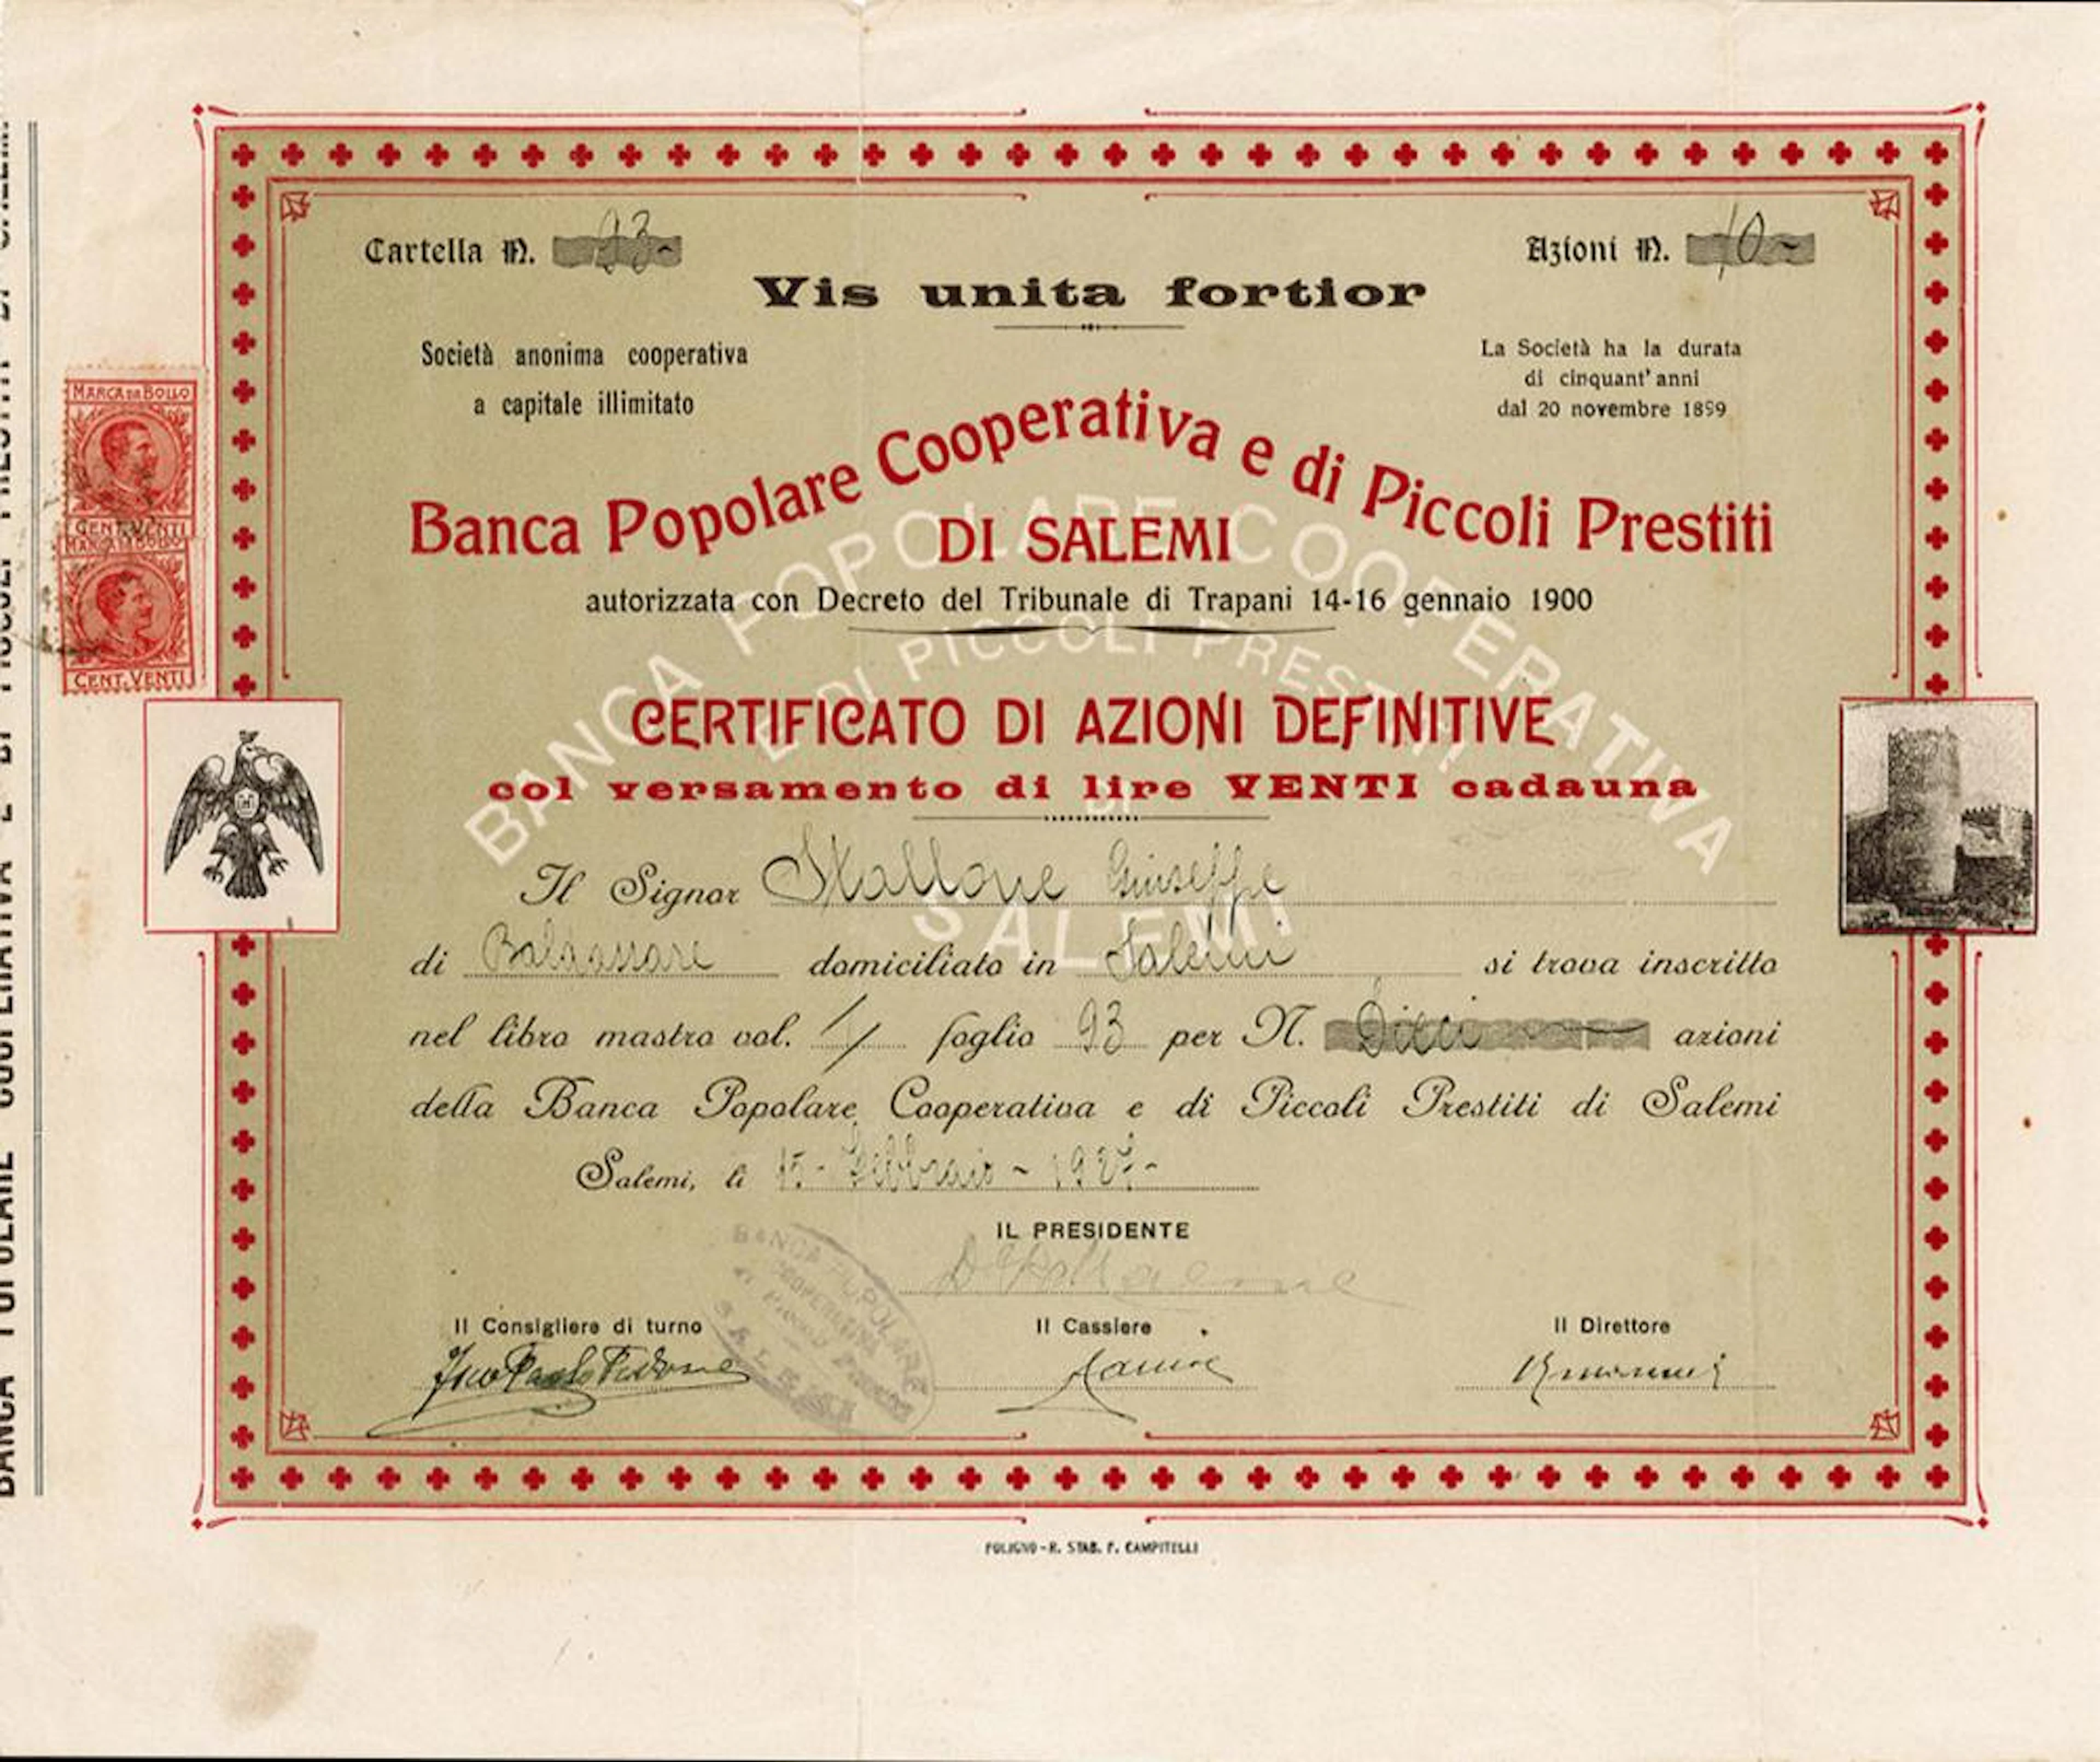 Cartella N. 93-
Azioni N. 10-
Vis unita fortior
Società anonima cooperativa
a capitale illimitato
La Società ha la durata
di cinquant'anni
dal 20 novembre 1899
Banca Popolare Cooperativa e di Piccoli Prestiti
DI SALEMI
autorizzata con Decreto del Tribunale di Trapani 14-16 gennaio 1900
CERTIFICATO DI AZIONI DEFINITIVE
col versamento di lire VENTI cadauna
Il Signor Stallone Giuseppe
di Baldassare domiciliato in Salemi si trova inscritto
nel libro mastro vol. 1 foglio 93 per N. Dieci azioni
della Banca Popolare Cooperativa e di Piccoli Prestiti di Salemi
Salemi, li 15- Febbraio - 1927-
IL PRESIDENTE
Il Consigliere di turno
Il Cassiere
Il Direttore
FOLIGNO-R. STAB. F. CAMPITELLI
MARCA DA BOLLO
CENT. VENTI
MARCA DA BOLLO
CENT. VENTI
BANCA POPOLARE COOPERATIVA
E DI PICCOLI PRESTITI
DI
SALEMI
BANCA POPOLARE
COOPERATIVA
SALEMI
BANCA POPOLARE COOPERATIVA E DI PICCOLI PRESTITI DI SALEMI